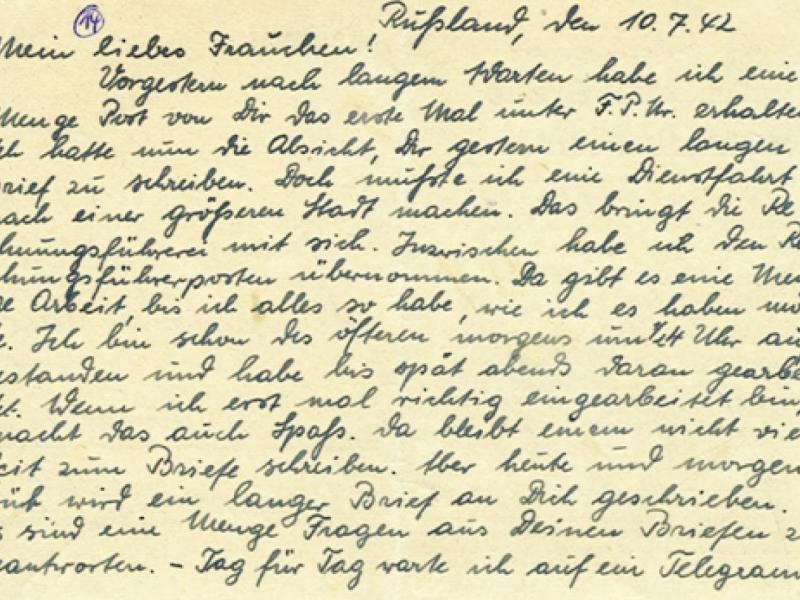 14
Rußland, den 10.7.42
Mein liebes Frauchen!
Vorgestern nach langem Warten habe ich eine
Menge Post von Dir das erste Mal unter F.P.Nr. erhalten
ch hatte nun die Absicht, Dir gestern einen langen
rief zu schreiben. Doch mußte ich eine Dienstfahrt
nach einer größeren Stadt machen. Das bringt die Re
chnungsführerei mit sich. Inzwischen habe ich den Re
chnungsführerposten übernommen. Da gibt es eine Men
ge Arbeit, bis ich alles so habe, wie ich es haben mö
e. Ich bin schon des öfteren morgens um 1/4 4 Uhr au
estanden und habe bis spät abends daran gearbe
et. Wenn ich erst mal richtig eingearbeitet bin,
macht das auch Spaß. Da bleibt einem nicht vie
eit zum Briefe schreiben. Aber heute und morgen
rüh wird ein langer Brief an Dich geschrieben.
s sind eine Menge Fragen aus Deinen Briefen z
eantworten. - Tag für Tag warte ich auf ein Telegram